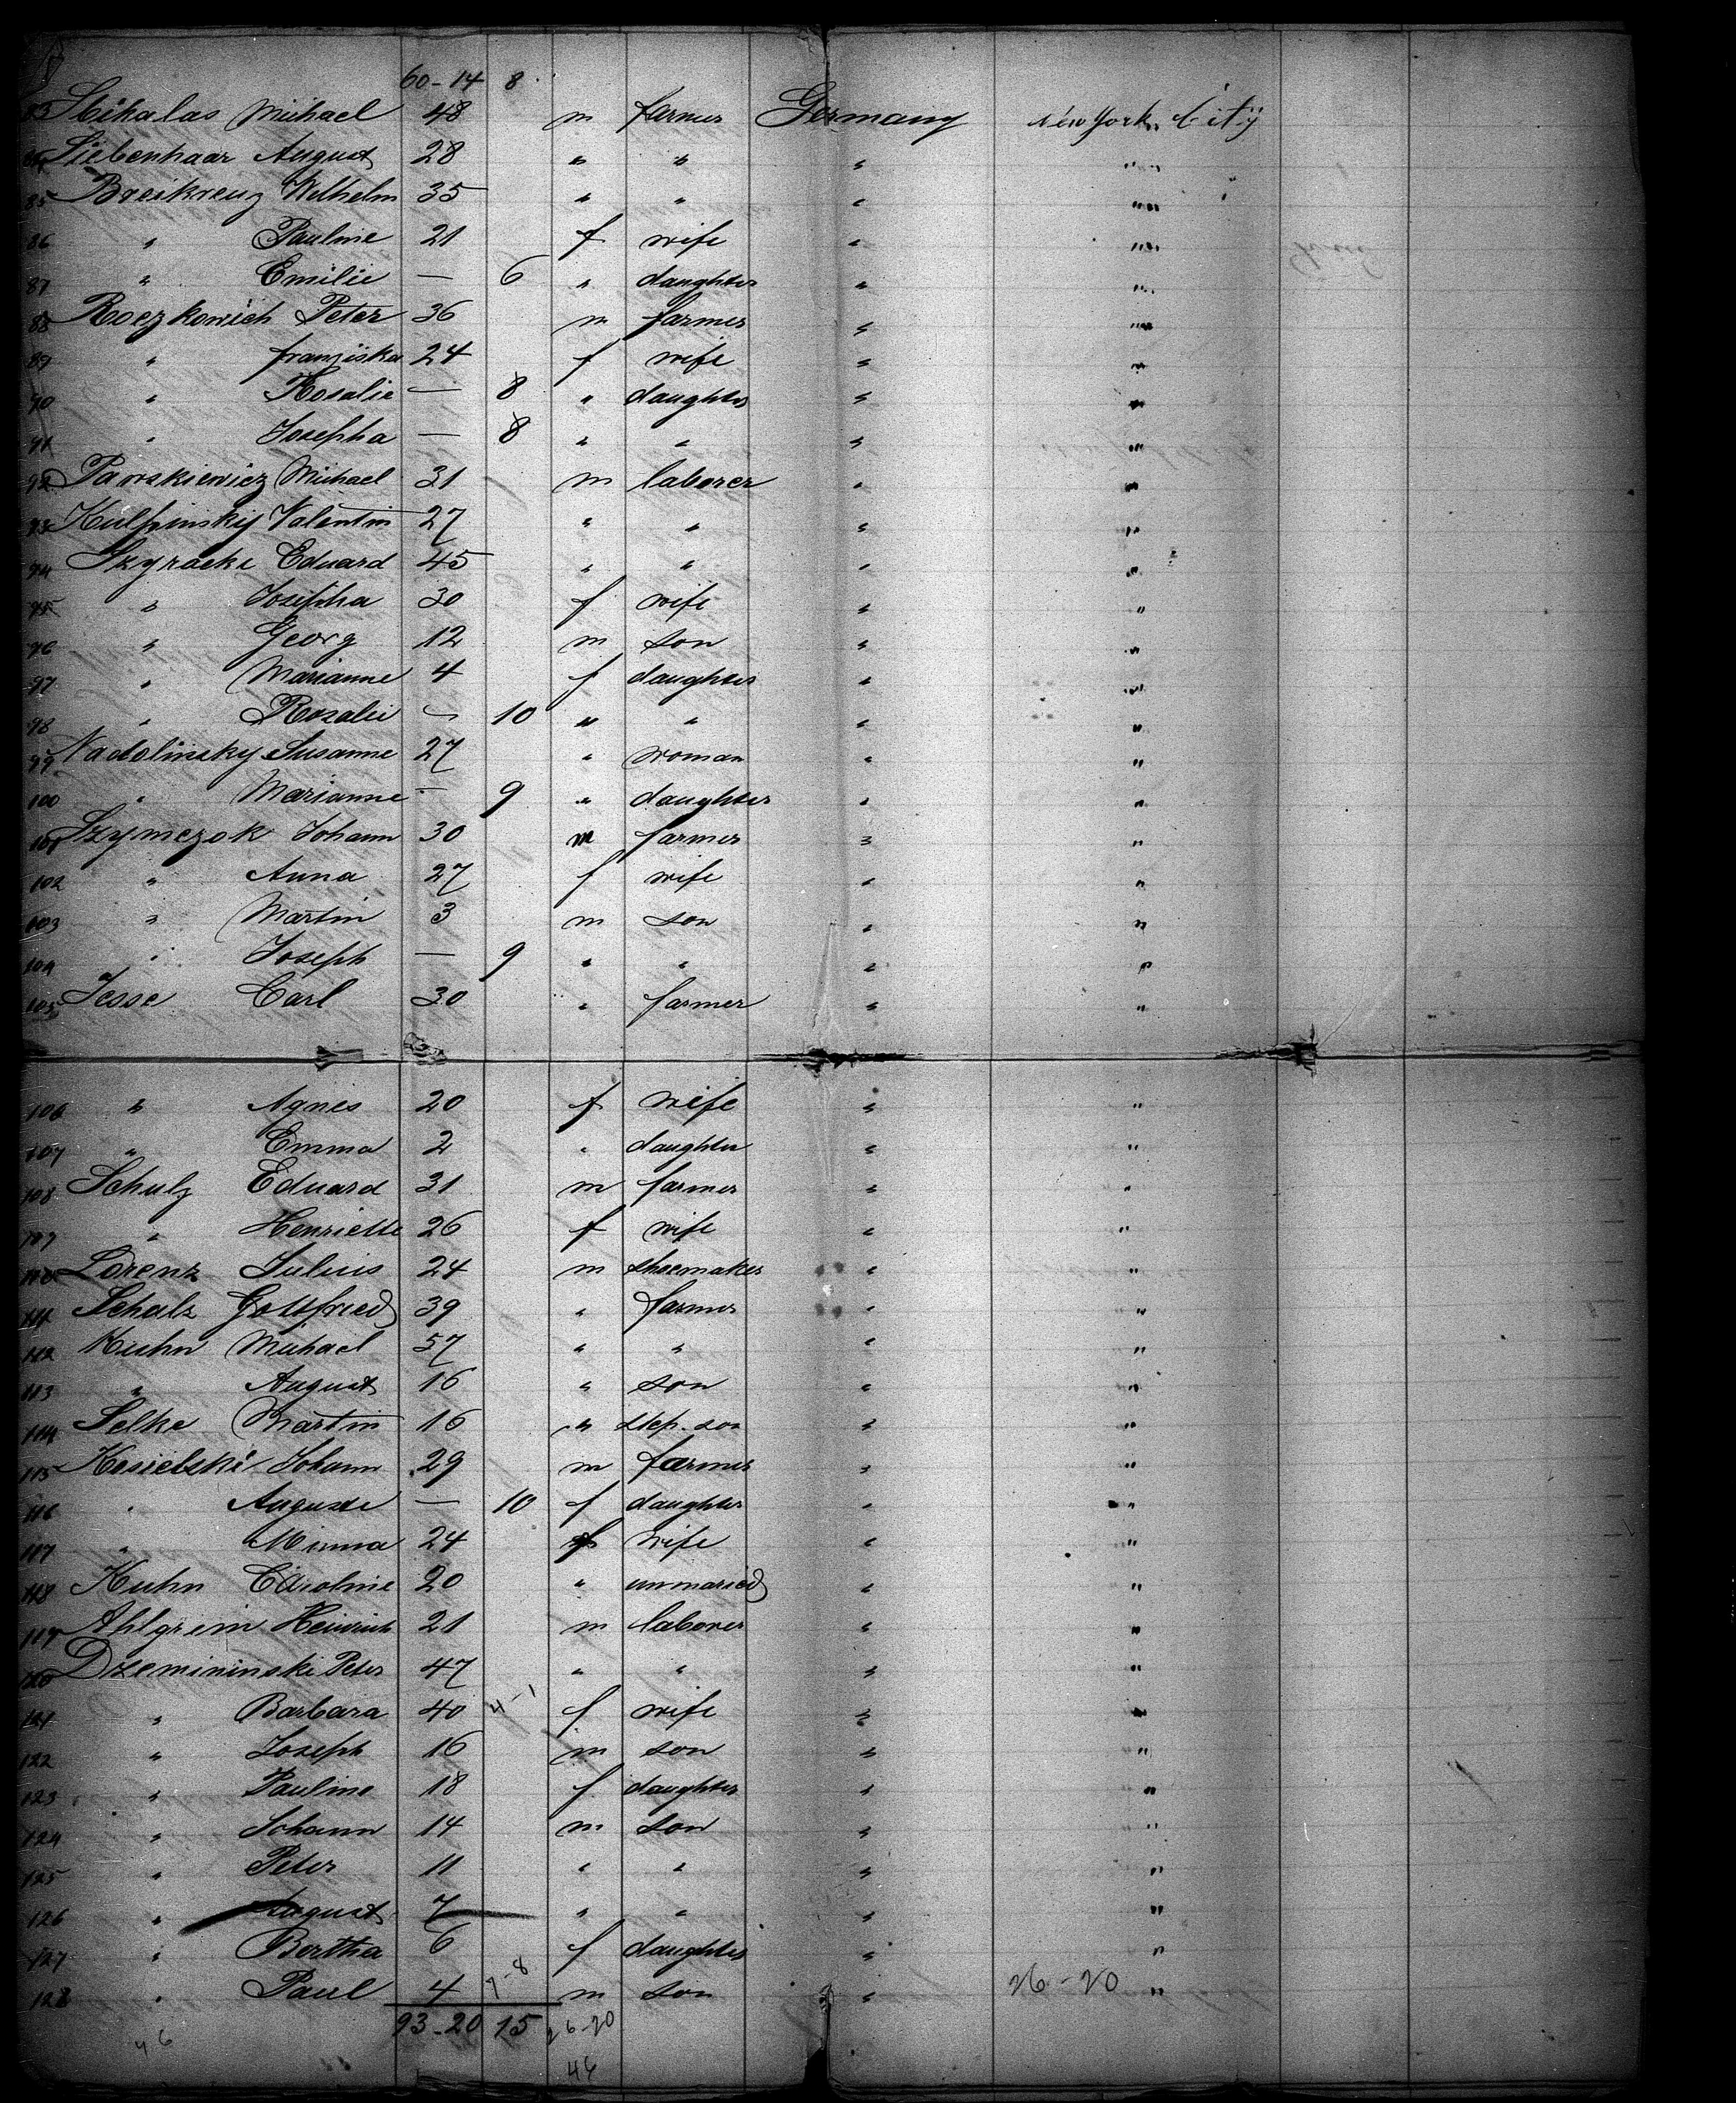 60-14 8
83 Skikalas Michael 48 m farmer Germany New York City
84 Siebenhaar August 28 " " " "
85 Breikreuz Wilhelm 35 " " " "
86 " Pauline 21 f wife " "
87 " Emilie — 6 " daughter " "
88 Roczkowich Peter 36 m farmer " "
89 " franziska 24 f wife " "
90 " Rosalie — 8 " daughter " "
91 " Josepha — 8 " " " "
92 Pawskiewicz Michael 31 m laborer " "
93 Kulpinskij Valentin 27 " " " "
94 Szyracki Eduard 45 " " " "
95 " Josepha 30 f wife " "
96 " Georg 12 m son " "
97 " Marianne 4 f daughter " "
98 " Rosalie — 10 " " " "
99 Nadolinsky Susanne 27 " woman " "
100 " Marianne — 9 " daughter " "
101 Szymczok Johann 30 m farmer " "
102 " Anna 27 f wife " "
103 " Martin 3 m son " "
104 " Joseph — 9 " " " "
105 Jesse Carl 30 " farmer " "
106 " Agnes 20 f wife " "
107 " Emma 2 " daughter " "
108 Schulz Eduard 31 m farmer " "
109 " Henriette 26 f wife " "
110 Lorenz Julius 24 m shoemaker " "
111 Schulz Gottfried 39 " farmer " "
112 Kuhn Michael 57 " " " "
113 " August 16 " son " "
114 Selke Martin 16 " step-son " "
115 Kosielski Johann 29 m farmer " "
116 " Auguste — 10 f daughter " "
117 " Minna 24 f wife " "
118 Kuhn Caroline 20 " unmaried " "
119 Ahlgrein Heinrich 21 m laborer " "
120 Dzemininski Peter 47 " " " "
121 " Barbara 40 4-1 f wife " "
122 " Joseph 16 m son " "
123 " Pauline 18 f daughter " "
124 " Johann 14 m son " "
125 " Peter 11 " " " "
126 " August 7 " " " "
127 " Bertha 6 f daughter " "
128 " Paul 4 7-8 m son " 26-20 "
93-20 15 26-20
46
46